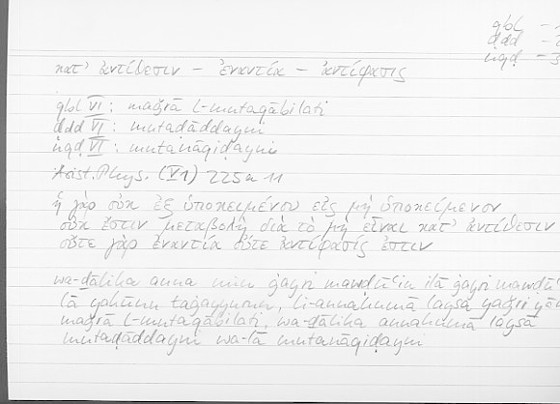 qbl –
ḍdd –
nqḍ – 3
κατ' ἀντίθεσιν – ἐναντία – ἀντίφασις
qbl VI : maǧrā l-mutaqābilati
ḍdd VI : mutaḍāddayni
nqḍ VI : mutanāqiḍayni
Arist. Phys. (V1) 225a 11
ἡ γὰρ οὐκ ἐξ ὑποκειμένου εἰς μὴ ὑποκείμενον
οὐκ ἔστιν μεταβολὴ διὰ τὸ μὴ εἶναι κατ' ἀντίθεσιν
οὔτε γὰρ ἐναντία οὔτε ἀντίφασίς ἐστιν
wa-ḏālika anna min ġayri mawḍūʿin ilā ġayri mawḍūʿ
lā yakūnu taġayyurun, li-annahumā laysā
maǧrā l-mutaqābilati, wa-ḏālika annahumā laysā
mutaḍāddayni wa-lā mutanāqiḍayni